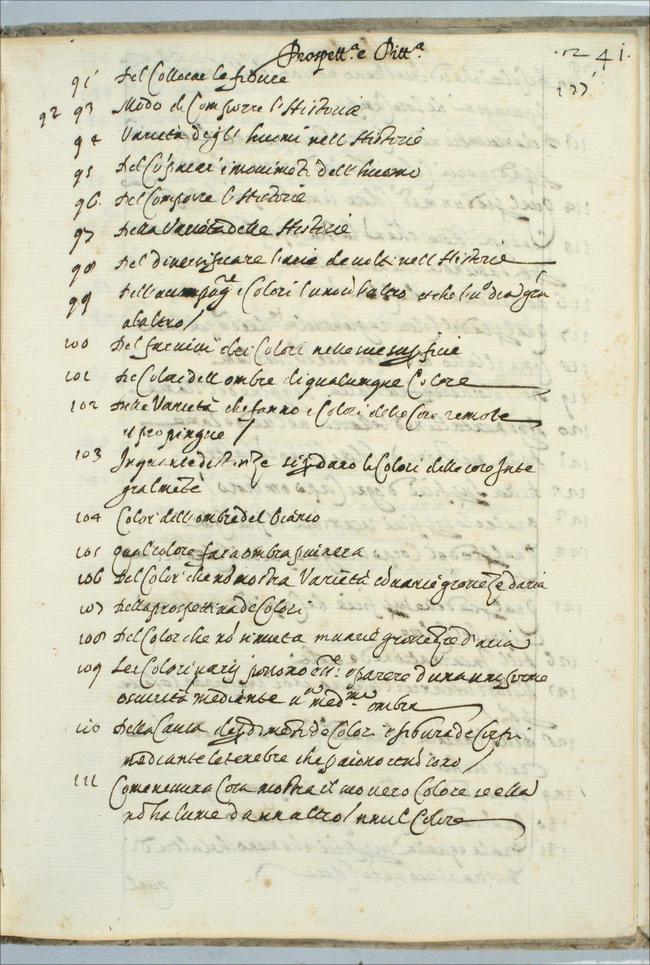 Prospett.a e Pitt.a
241.
177
91 Del Collocar le figure
92 93 Modo di Comporre l'Historie
94 Varietà degli huomi nell Historie
95 Del Cõponer i movimẽti dell'huomo
96. Del Comporre l'Historie
97 Della Varietà delle Historie
98 Del diversificare l'arie de volti nell Historie
99 Dell'acompag.re i Colori l'uno cõ l'altro et che l'uº dia grã
al altro/
100 Del far vivi
101 De Colori dell ombre di qualunque Colore
102 Delle Varietà che fanno i Colori delle Cose remote
e propinque/
103 In quanto di stanze si perdano li Colori delle cose Inte
gralmẽte
104 Colori dell'ombre del bianco
105 qual colore farà ombra piu nera
106 Del Color che nõ mostra Varietà cõ varie grossezze d'aria
107 Della prospettiva de Colori
108 Del Color che nõ si muta in varie grossezze d'aria
109 Se i Colori varij possono ess.e o parere d'una uniforme
oscurità mediante uª med.ma ombra
110 Della Causa de perdimẽti de Colori e figura de Corpi
mediante le tenebre che paiono e nõ sono/
111 Come nessuna Cosa mostra il suo vero Colore se ella
nõ ha lume da un altro simil Colore